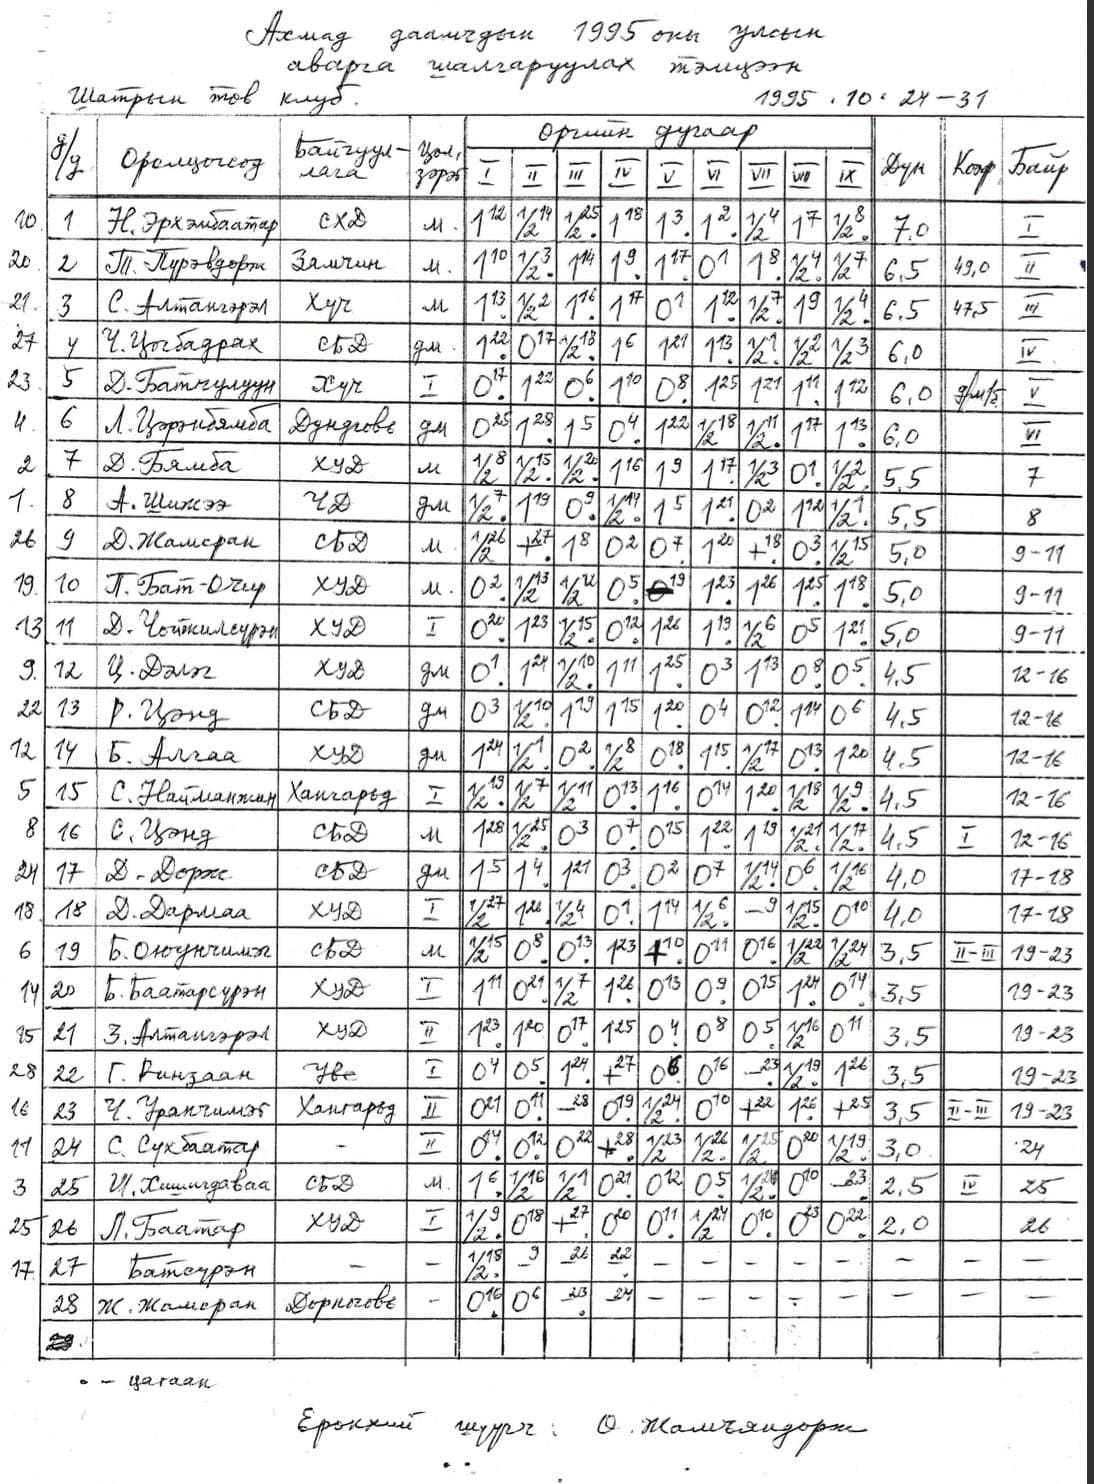 Ахмад даамчдын 1995 оны улсын
аварга шалгаруулах тэмцээн
Шатрын төв клуб. 1995.10.24-31
д/д Оролцогсод Байгууллага Цол, зэрэг Өргийн дугаар Дүн Коэф Байр
I II III IV V VI VII VIII IX
10. 1 Н. Эрхэмбаатар СХД м. 1¹² 1/2¹⁴ 1/2²⁵. 1¹⁸ 1³. 1². 1/2⁴ 1⁷ 1/2⁸. 7.0 I
20. 2 Т. Пүрэвдорж Замчин м. 1¹⁰ 1/2³. 1¹⁴ 1⁹. 1¹⁷ 0¹ 1⁸. 1/2⁴ 1/2⁷. 6,5 49,0 II
21. 3 С. Алтангэрэл Хүч м 1¹³. 1/2² 1¹⁶. 1¹⁷ 0¹ 1¹². 1/2⁷. 1⁹ 1/2⁴. 6.5 47,5 III
27 4 Ч. Цогбадрах СБД дм. 1²². 0¹⁷ 1/2¹⁸. 1⁶ 1²¹ 1¹³. 1/2¹. 1/2². 1/2³ 6,0 IV
23. 5 Д. Батчулуун Хүч I 0¹⁷. 1²² 0⁶. 1¹⁰ 0⁸. 1²⁵ 1²¹ 1¹¹. 1¹² 6,0 V
4. 6 Л. Цэрэнбямба Дундговь дм 0²⁵ 1²⁸. 1⁵ 0⁴. 1²² 1/2¹⁸ 1/2¹¹. 1¹⁷ 1¹³. 6,0 VI
2 7 Д. Бямба ХУД м 1/2⁸ 1/2¹⁵. 1/2²⁰. 1¹⁶ 1⁹ 1¹⁷. 1/2³ 0¹. 1/2². 5,5 7
1. 8 А. Шижээ ЧД дм 1/2⁷. 1¹⁹ 0⁹. 1/2¹⁴. 1⁵ 1²¹. 0² 1¹². 1/2¹. 5,5 8
26 9 Д. Жамсран СБД м. 1/2²⁶ +²⁷. 1⁸ 0² 0⁷. 1²⁰ +¹⁸. 0³. 1/2¹⁵ 5,0 9-11
19. 10 П. Бат-Очир ХУД м. 0². 1/2¹³ 1/2¹² 0⁵. 0¹⁹ 1²³. 1²⁶ 1²⁵. 1¹⁸. 5,0 9-11
13 11 Д. Чойжилсүрэн ХУД I 0²⁰. 1²³ 1/2¹⁵. 0¹². 1²⁶ 1¹⁹. 1/2⁶ 0⁵ 1²¹. 5,0 9-11
9. 12 Ц. Дэлэг ХУД дм 0¹. 1²⁴ 1/2¹⁰. 1¹¹ 1²⁵. 0³ 1¹³ 0⁸. 0⁵. 4,5 12-16
22 13 Р. Цэнд СБД дм 0³ 1/2¹⁰. 1¹⁹ 1¹⁵ 1²⁰. 0⁴ 0¹². 1¹⁴. 0⁶ 4,5 12-16
12 14 Б. Алгаа ХУД дм 1²⁴ 1/2¹. 0². 1/2⁸ 0¹⁸. 1¹⁵ 1/2¹⁷ 0¹³. 1²⁰ 4.5 12-16
5 15 С. Найманжин Хангарьд I 1/2¹⁹. 1/2⁷ 1/2¹¹ 0¹³. 1¹⁶. 0¹⁴ 1²⁰. 1/2¹⁸ 1/2⁹. 4,5 12-16
8 16 С. Цэнд СБД м 1²⁸ 1/2²⁵. 0³ 0⁷. 0¹⁵ 1²². 1¹⁹ 1/2²¹. 1/2¹⁷. 4,5 I 12-16
24 17 Д. Дорж СБД дм 1⁵ 1⁴. 1²¹ 0³. 0² 0⁷ 1/2¹⁴. 0⁶. 1/2¹⁶ 4,0 17-18
18. 18 Д. Дармаа ХУД I 1/2²⁷ 1²⁶. 1/2⁴ 0¹. 1¹⁴ 1/2⁶. -⁹ 1/2¹⁵. 0¹⁰ 4,0 17-18
6 19 Б. Оюунчимэг СБД м 1/2¹⁵ 0⁸. 0¹³. 1²³ +¹⁰. 0¹¹ 0¹⁶. 1/2²² 1/2²⁴ 3,5 II-III 19-23
14 20 Б. Баатарсүрэн ХУД I 1¹¹ 0²¹. 1/2⁷ 1²⁶. 0¹³ 0⁹. 0¹⁵ 1²⁴. 0¹⁴. 3,5 19-23
15 21 З. Алтангэрэл ХУД II 1²³. 1²⁰ 0¹⁷. 1²⁵ 0⁴. 0⁸ 0⁵. 1/2¹⁶ 0¹¹ 3,5 19-23
28 22 Г. Ринзаан Увс I 0⁴ 0⁵. 1²⁴. +²⁷ 0⁶. 0¹⁶ -²³. 1/2¹⁹. 1²⁶ 3,5 19-23
16 23 Ч. Уранчимэг Хангарьд II 0²¹ 0¹¹. -²⁸ 0¹⁹. 1/2²⁴. 0¹⁰ +²² 1²⁶. +²⁵ 3,5 II-III 19-23
11 24 С. Сүхбаатар - II 0¹⁴. 0¹². 0²² +²⁸. 1/2²³ 1/2²⁶. 1/2²⁵. 0²⁰ 1/2¹⁹. 3,0 24
3 25 И. Хишигдаваа СБД м. 1⁶. 1/2¹⁶ 1/2¹ 0²¹. 0¹² 0⁵. 1/2²⁴. 0¹⁰ -²³. 2,5 IV 25
25 26 Л. Баатар ХУД I 1/2⁹. 0¹⁸ +²⁷. 0²⁰ 0¹¹. 1/2²⁴ 0¹⁰. 0²³ 0²². 2,0 26
17. 27 Батсүрэн - - 1/2¹⁸. -⁹ -²⁶ -²². - - - - - - - -
28 Ж. Жамсран Дорноговь - 0¹⁶. 0⁶ -²³. -²⁴ - - - - - - - -
29.
• - цагаан
Ерөнхий шүүгч: О. Жамъяндорж